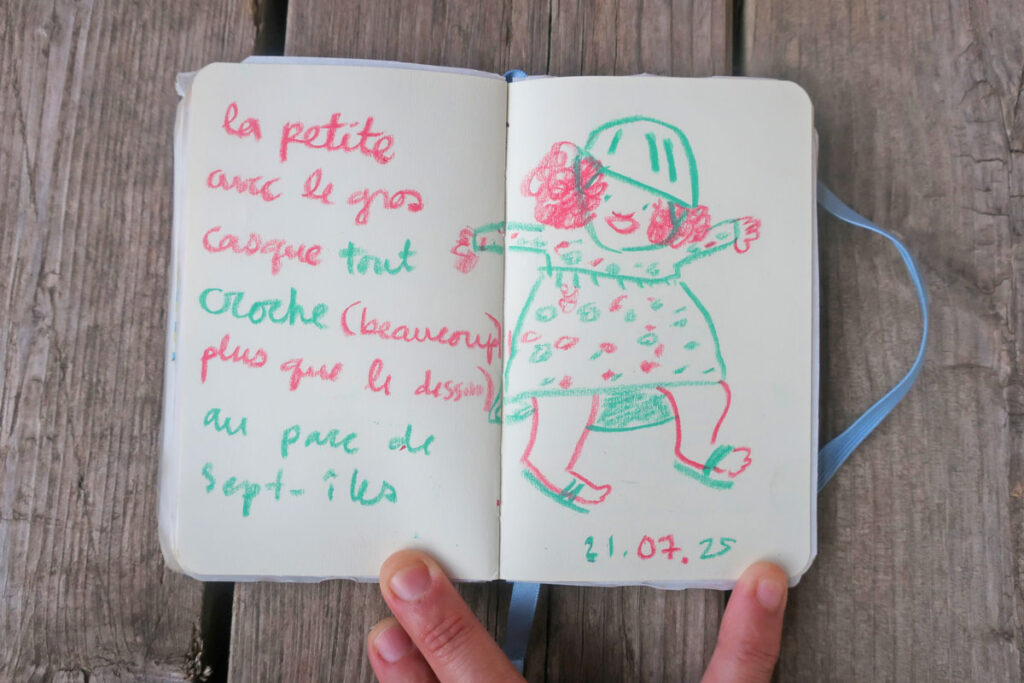 la petite
avec le gros
casque tout
croche (beaucoup
plus que le dessin)
au parc de
sept-îles
21.07.25